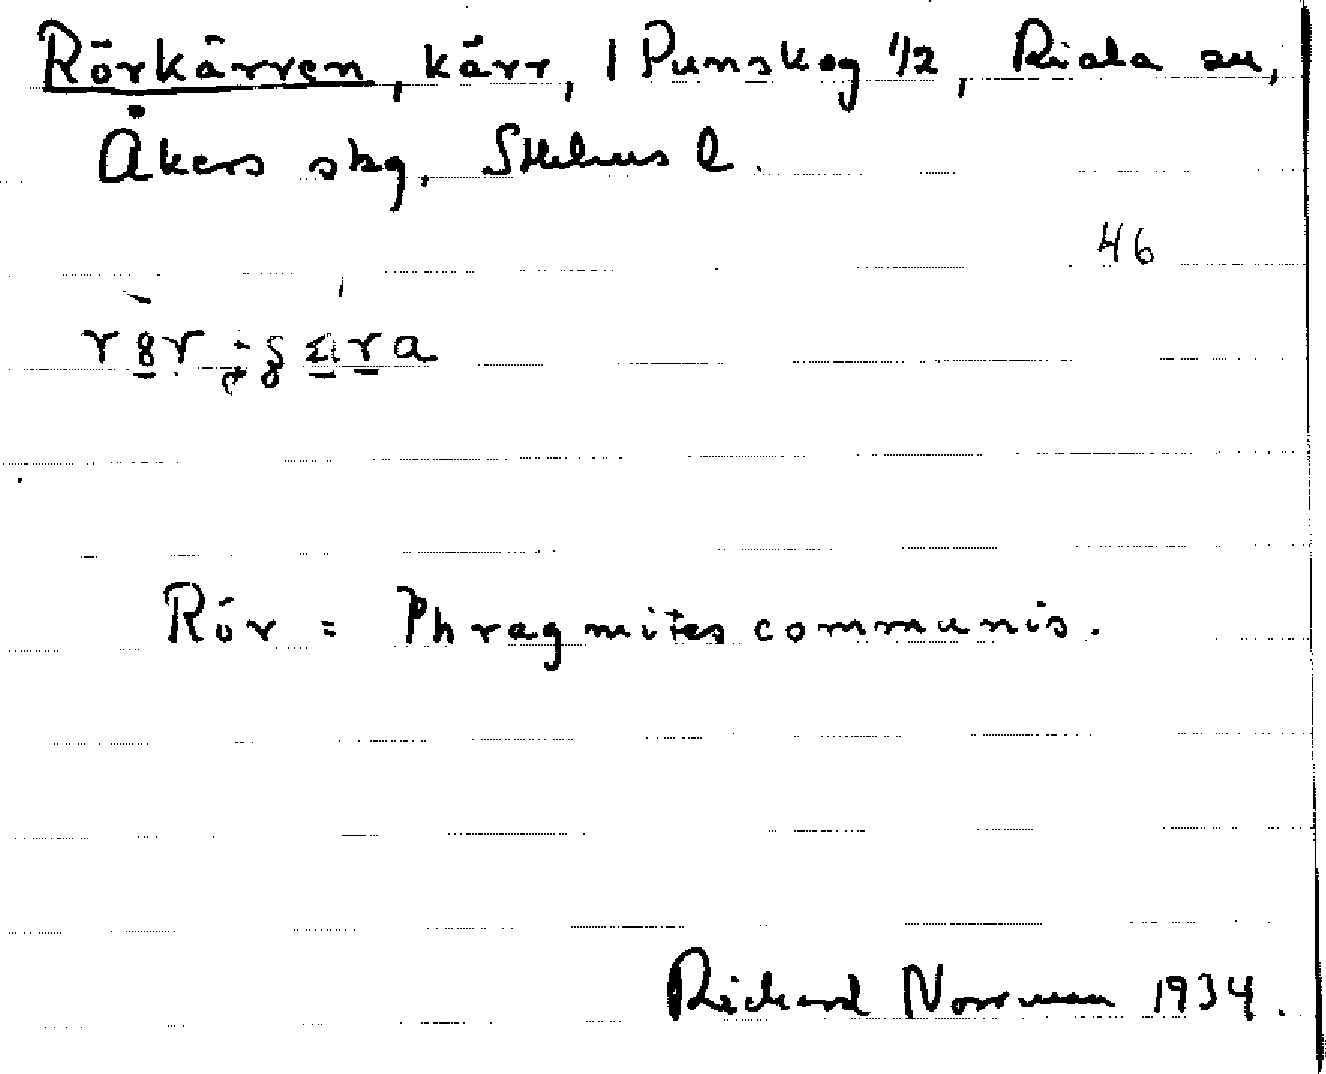 Rörkärren, kärr, 1 Punskog 1/2, Riala sn,
Åkers skg, Sthlms l.
46
Rör = Phragmites communis.
Richard Norrman 1934.